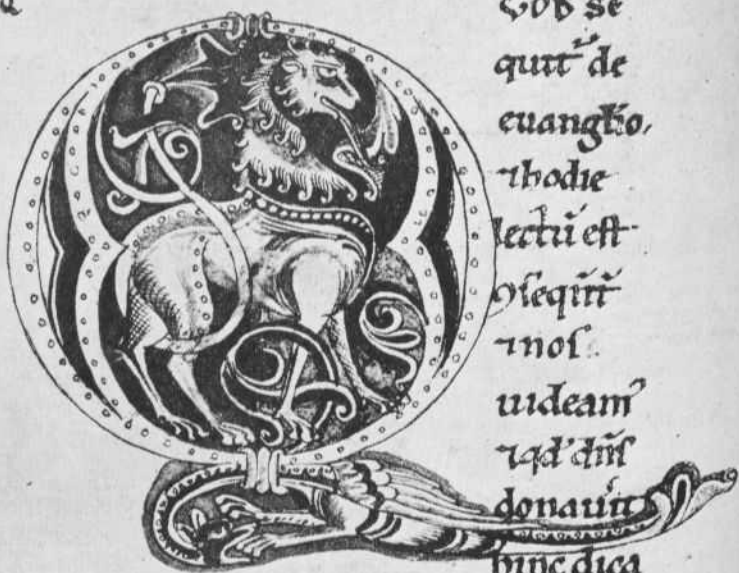 quit̄ de
euangło.
⁊ hodie
lectū est
ↄseqūt̄
⁊ nos
uideam᷑
⁊ qd' dn̄s
donauit
hinc dica